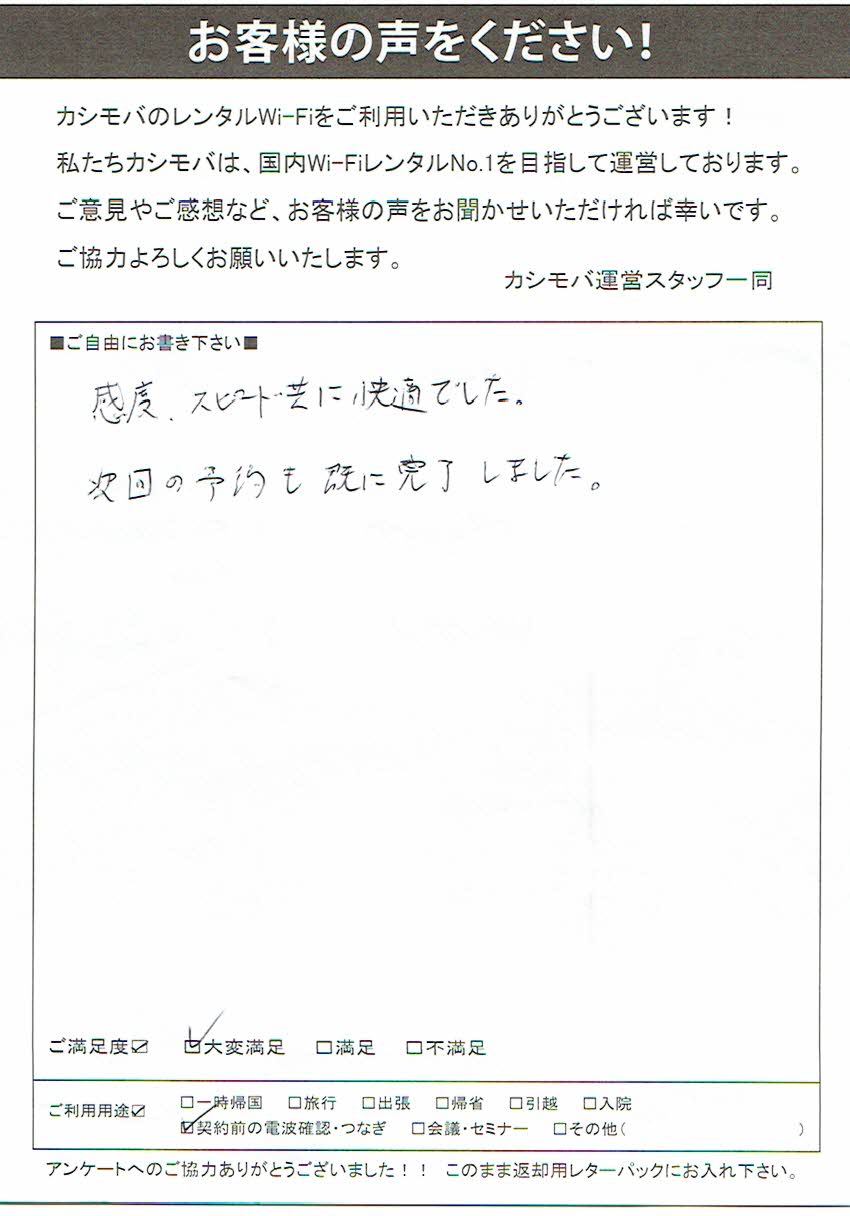 お客様の声をください!
カシモバのレンタルWi-Fiをご利用いただきありがとうございます！
私たちカシモバは、国内Wi-FiレンタルNo.1を目指して運営しております。
ご意見やご感想など、お客様の声をお聞かせいただければ幸いです。
ご協力よろしくお願いいたします。
カシモバ運営スタッフ一同
■ご自由にお書き下さい■
感度、スピード共に快適でした。
次回の予約も既に完了しました。
ご満足度☑ ☑大変満足 □満足 □不満足
ご利用用途☑ □一時帰国 □旅行 □出張 □帰省 □引越 □入院
☑契約前の電波確認・つなぎ □会議・セミナー □その他( )
アンケートへのご協力ありがとうございました！！ このまま返却用レターパックにお入れ下さい。